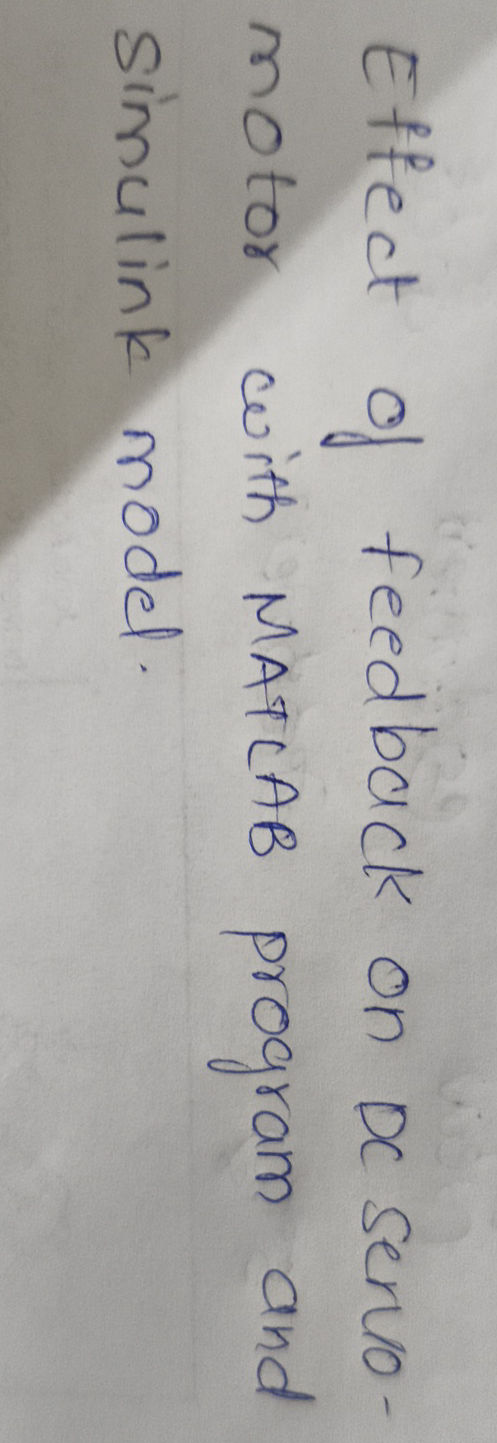 Effect of feedback on DC servo-
motor with MATLAB program and
simulink model.